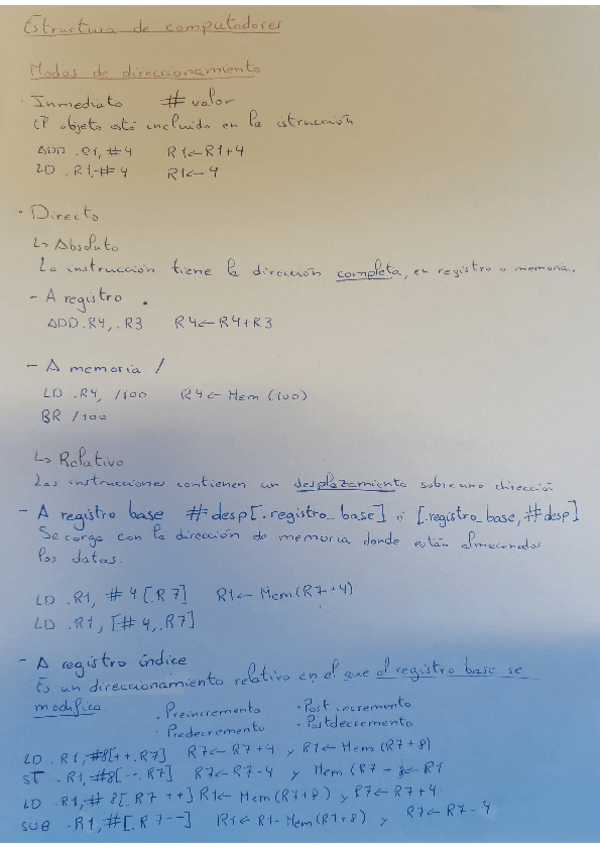 Estructura de computadores
Modos de direccionamiento
· Inmediato # valor
El objeto está incluido en la istrucción
ADD .R1, #4 R1←R1+4
LD .R1, #4 R1←4
· Directo
↳ Absoluto
La instrucción tiene la dirección completa, en registro o memoria.
- A registro .
ADD .R4, .R3 R4←R4+R3
- A memoria /
LD .R4, /100 R4←Mem(100)
BR /100
↳ Relativo
Las instrucciones contienen un desplazamiento sobre una dirección
- A registro base #desp[.registro_base] ó [.registro_base, #desp]
Se carga con la dirección de memoria donde están almacenados
los datos.
LD .R1, #4[.R7] R1←Mem(R7+4)
LD .R1, [#4, .R7]
- A registro índice
Es un direccionamiento relativo en el que el registro base se
modifica. . Preincremento · Post incremento
. Predecremento · Postdecremento
LD .R1, #8[++.R7] R7←R7+4 y R1←Mem(R7+8)
ST .R1, #8[--.R7] R7←R7-4 y Mem(R7+8←R1
LD .R1, #8[.R7++] R1←Mem(R7+8) y R7←R7+4
SUB .R1, #[.R7--] R1←R1-Mem(R7+8) y R7←R7-4